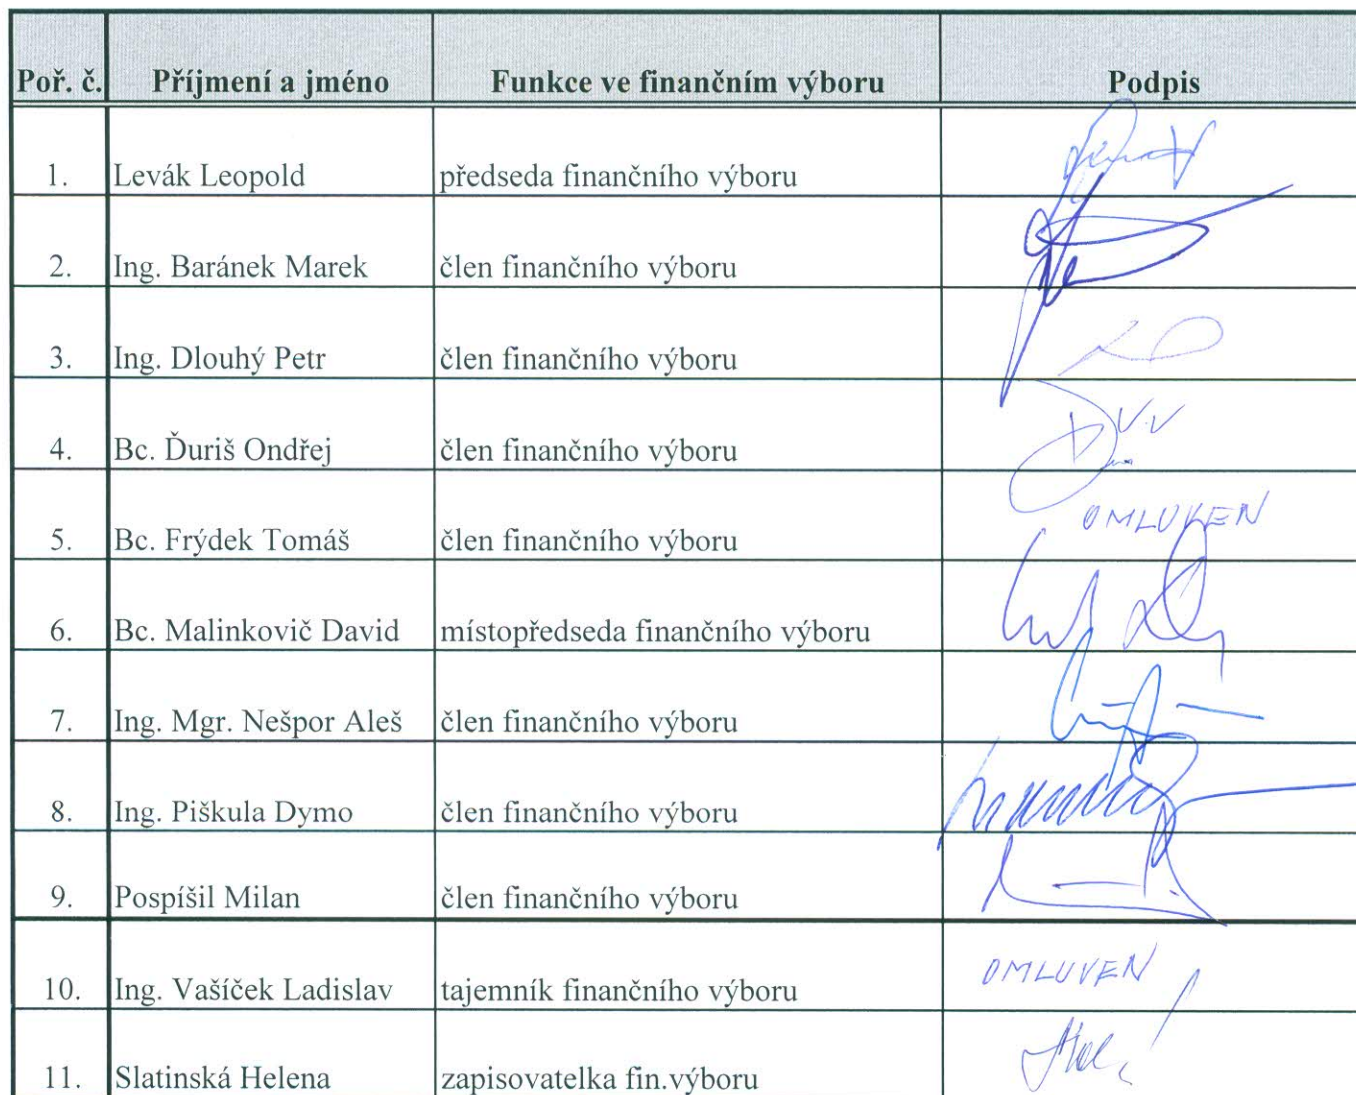 Poř. č. Příjmení a jméno Funkce ve finančním výboru Podpis
1. Levák Leopold předseda finančního výboru
2. Ing. Baránek Marek člen finančního výboru
3. Ing. Dlouhý Petr člen finančního výboru
4. Bc. Ďuriš Ondřej člen finančního výboru
5. Bc. Frýdek Tomáš člen finančního výboru OMLUVEN
6. Bc. Malinkovič David místopředseda finančního výboru
7. Ing. Mgr. Nešpor Aleš člen finančního výboru
8. Ing. Piškula Dymo člen finančního výboru
9. Pospíšil Milan člen finančního výboru
10. Ing. Vašíček Ladislav tajemník finančního výboru OMLUVEN
11. Slatinská Helena zapisovatelka fin.výboru